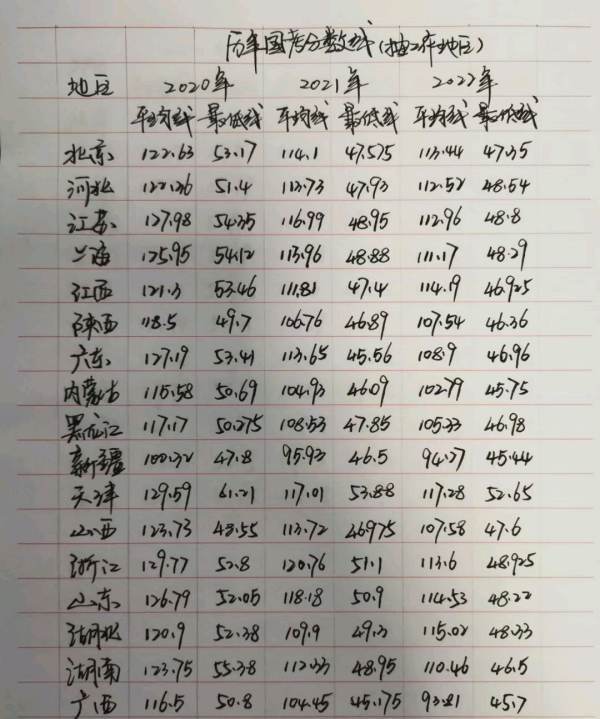 历年国考分数线(抽工作地区)
地区 2020年 2021年 2022年
平均线 最低线 平均线 最低线 平均线 最低线
北京 122.63 53.17 114.1 47.575 113.44 47.35
河北 122.36 51.4 113.73 47.93 112.52 48.54
江苏 127.98 54.35 116.99 48.95 112.96 48.8
上海 125.95 54.12 113.96 48.88 111.17 48.29
江西 121.3 53.46 111.81 47.4 114.19 46.925
陕西 118.5 49.7 106.76 46.89 107.54 46.36
广东 127.19 53.41 113.65 45.56 108.9 46.96
内蒙古 115.58 50.69 104.93 46.09 102.79 45.75
黑龙江 117.17 50.275 108.53 47.85 105.33 46.98
新疆 100.32 47.8 95.93 46.5 94.27 45.44
天津 129.59 61.21 117.01 53.88 117.28 52.65
山西 123.73 43.55 113.72 46.975 107.58 47.6
浙江 129.77 52.8 120.76 51.1 113.6 48.925
山东 126.79 52.05 118.18 50.9 114.53 48.22
湖北 120.9 52.38 109.9 49.3 115.02 48.33
湖南 123.75 55.38 112.33 48.95 110.46 46.5
广西 116.5 50.8 104.45 45.175 93.81 45.7